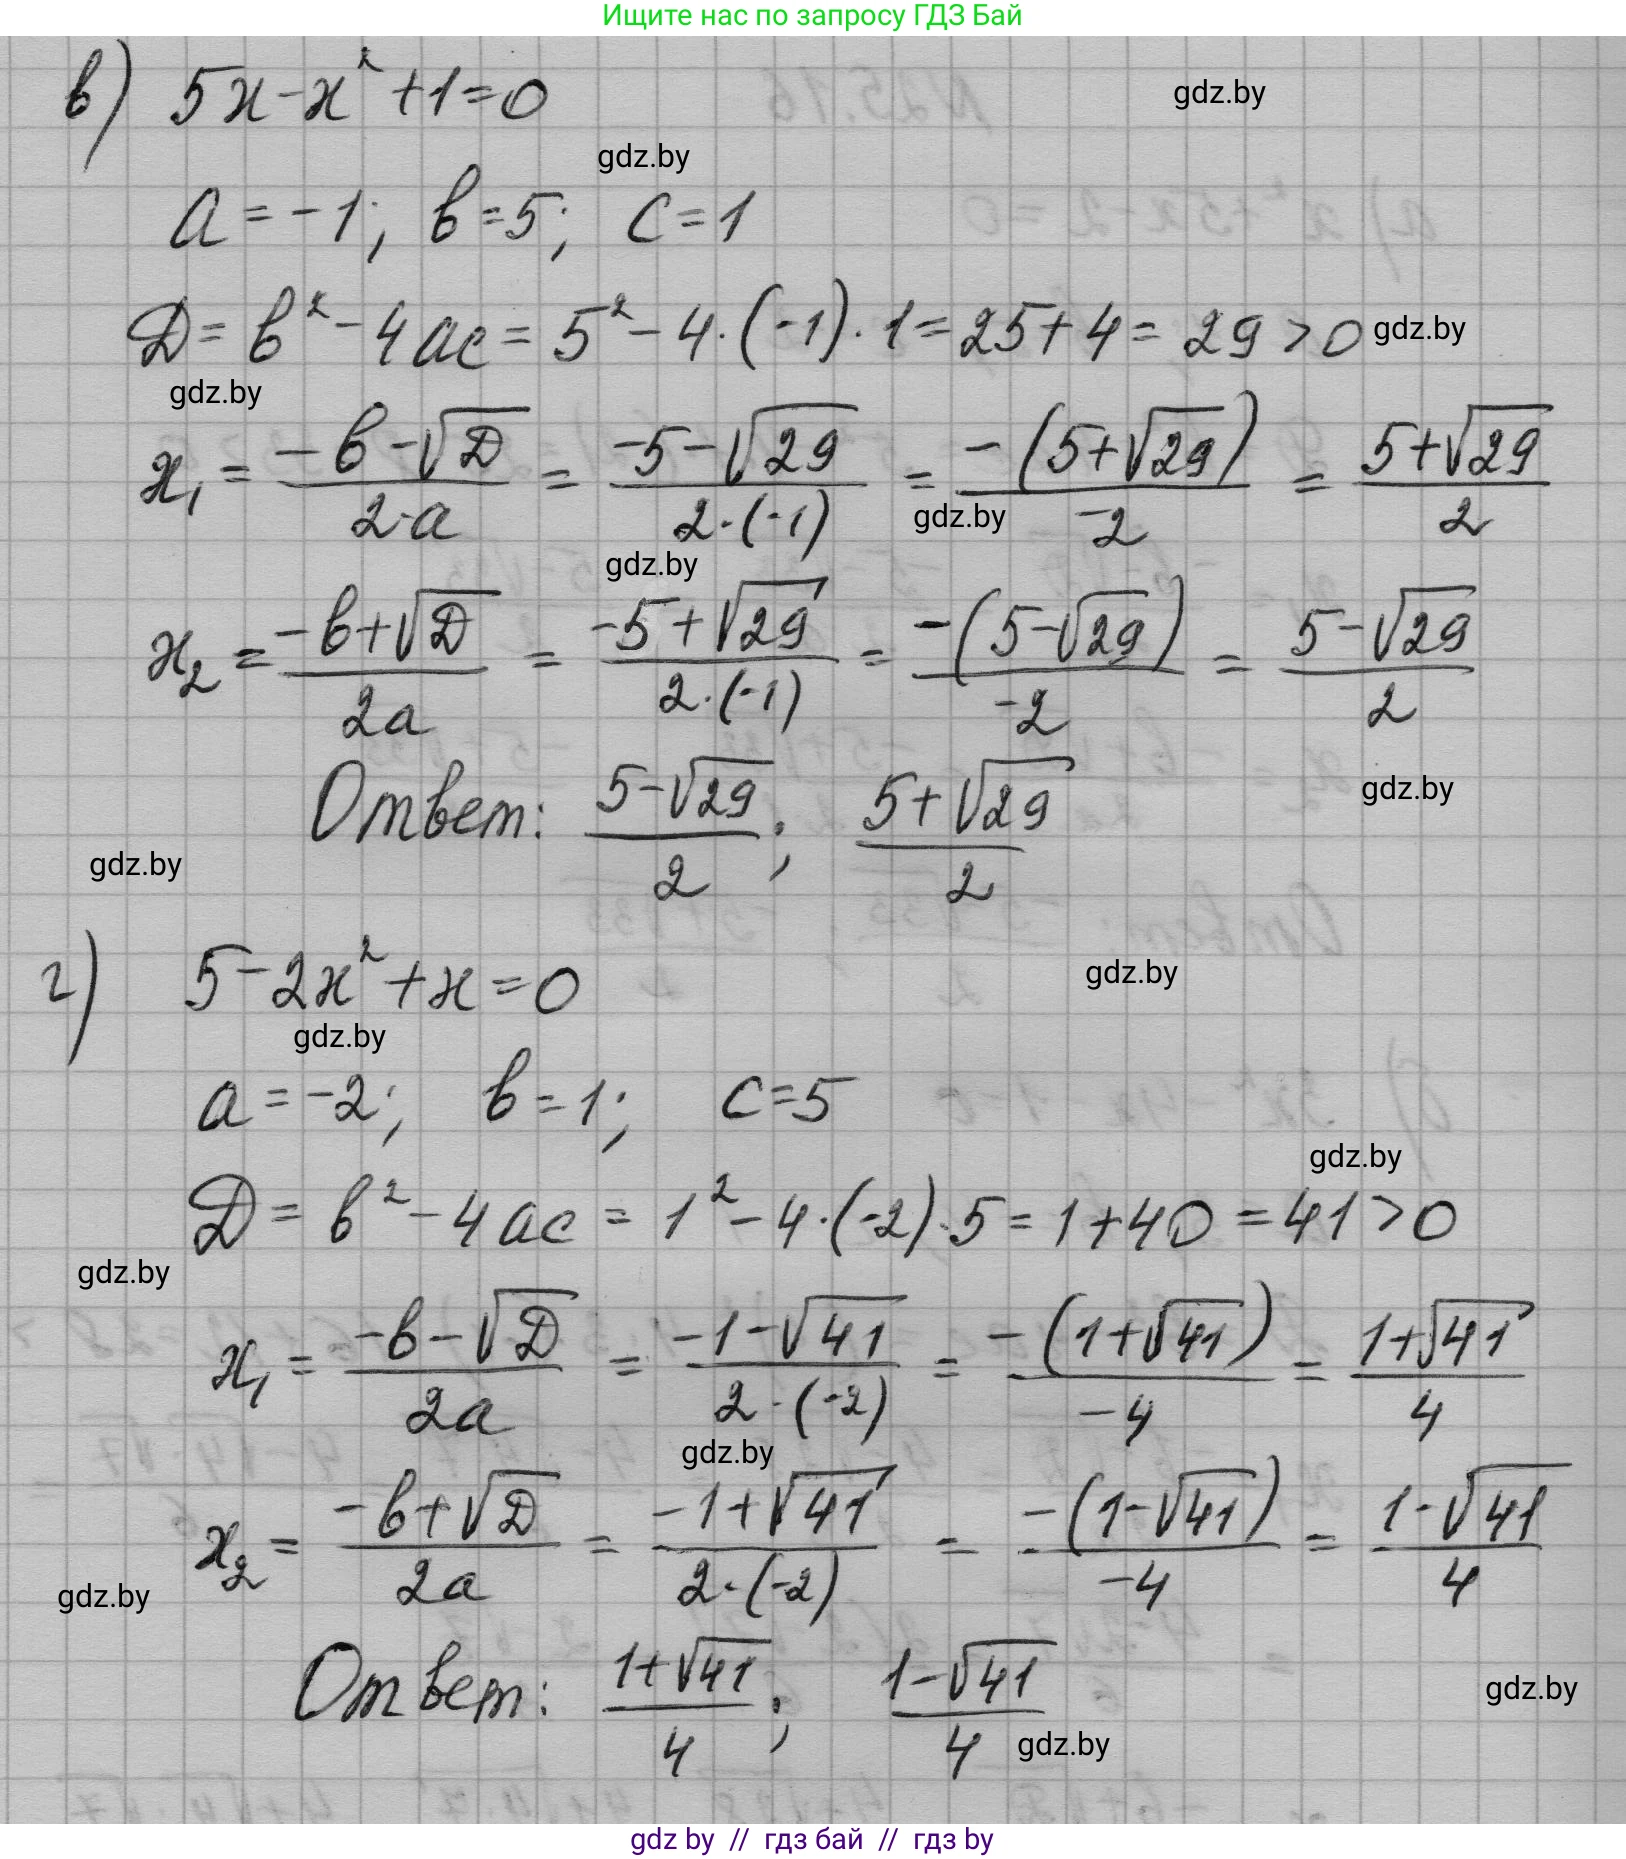 Ищите нас по запросу ГДЗ Бай
в) 5x - x² + 1 = 0
gdz.by
gdz.by
a = -1; в = 5; c = 1
D = в² - 4ac = 5² - 4 · (-1) · 1 = 25 + 4 = 29 > 0
gdz.by
gdz.by
x₁ = (-в - √D)/(2·a) = (-5 - √29)/(2·(-1)) = (-(5 + √29))/(-2) = (5 + √29)/2
gdz.by
gdz.by
x₂ = (-в + √D)/(2a) = (-5 + √29)/(2·(-1)) = (-(5 - √29))/(-2) = (5 - √29)/2
Ответ: (5 - √29)/2; (5 + √29)/2
gdz.by
gdz.by
г) 5 - 2x² + x = 0
gdz.by
gdz.by
a = -2; в = 1; c = 5
gdz.by
D = в² - 4ac = 1² - 4 · (-2) · 5 = 1 + 40 = 41 > 0
gdz.by
x₁ = (-в - √D)/(2a) = (-1 - √41)/(2·(-2)) = (-(1 + √41))/(-4) = (1 + √41)/4
gdz.by
x₂ = (-в + √D)/(2a) = (-1 + √41)/(2·(-2)) = (-(1 - √41))/(-4) = (1 - √41)/4
gdz.by
Ответ: (1 + √41)/4; (1 - √41)/4
gdz.by
gdz.by
gdz by // гдз бай // гдз by